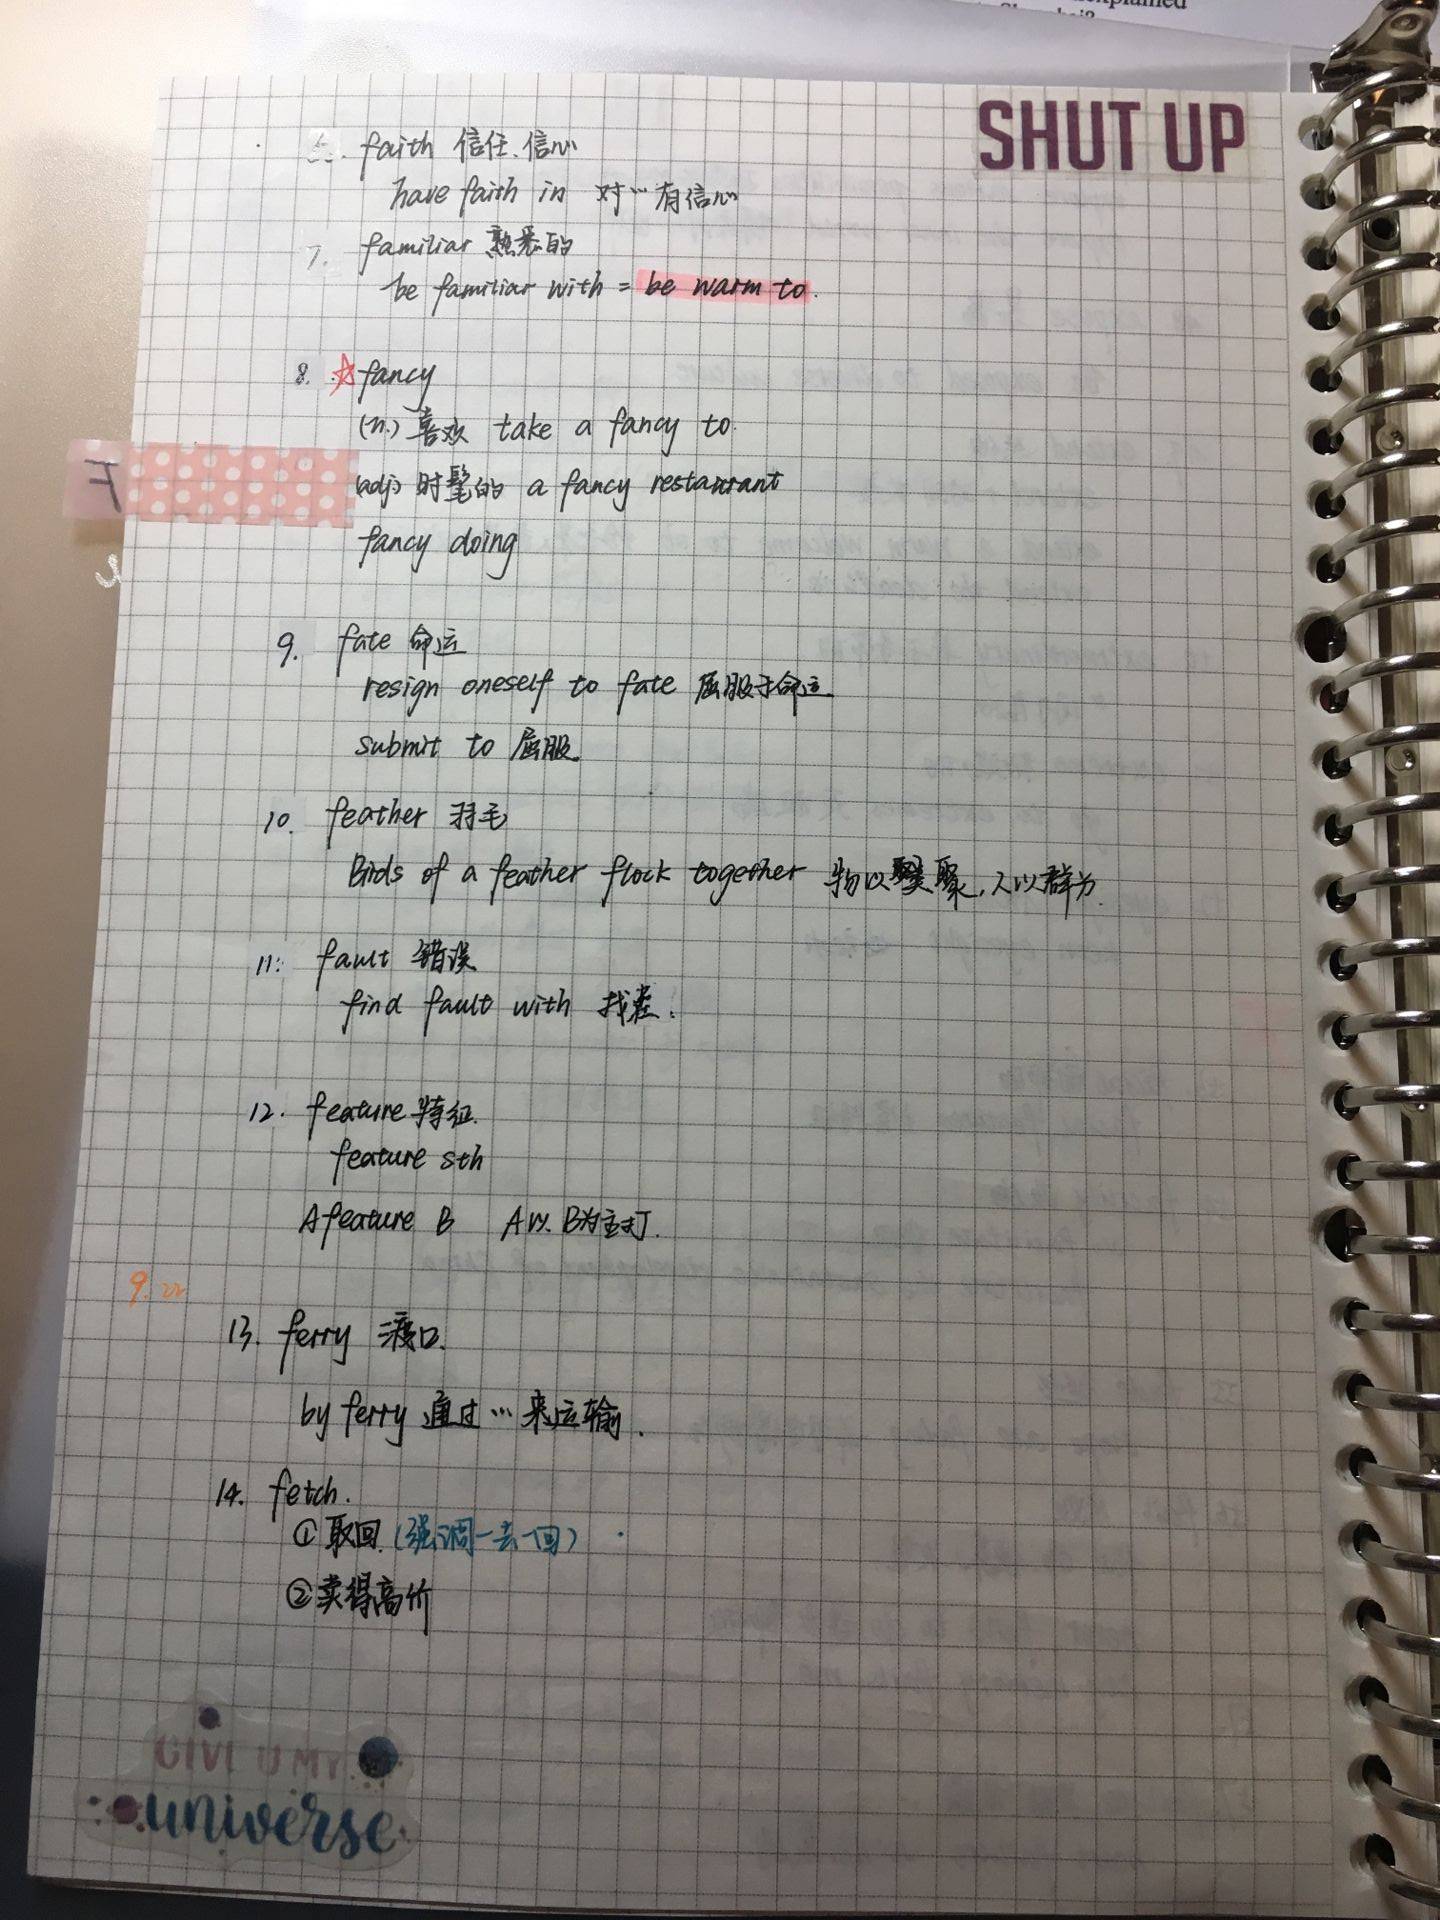 explained
SHUT UP
faith 信任、信心
have faith in 对…有信心
7. familiar 熟悉的
be familiar with = be warm to.
8. ☆ fancy
(n.) 喜欢 take a fancy to.
F
(adj) 时髦的 a fancy restaurant
fancy doing
9. fate 命运
resign oneself to fate 屈服于命运
submit to 屈服.
10. feather 羽毛
Birds of a feather flock together 物以类聚,人以群分.
11. fault 错误
find fault with 找茬.
12. feature 特征.
feature sth
A feature B A以B为主打.
9.22
13. ferry 渡口.
by ferry 通过…来运输.
14. fetch.
①取回.(强调一去一回)
②卖得高价
GIVE U MY
universe